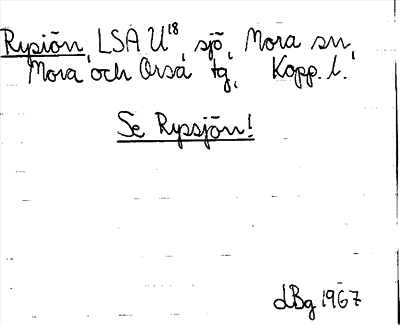 Rypiön, LSA U¹⁸, sjö, Mora sn,
Mora och Orsa tg, Kopp. l.
Se Rypsjön!
dBg 1967